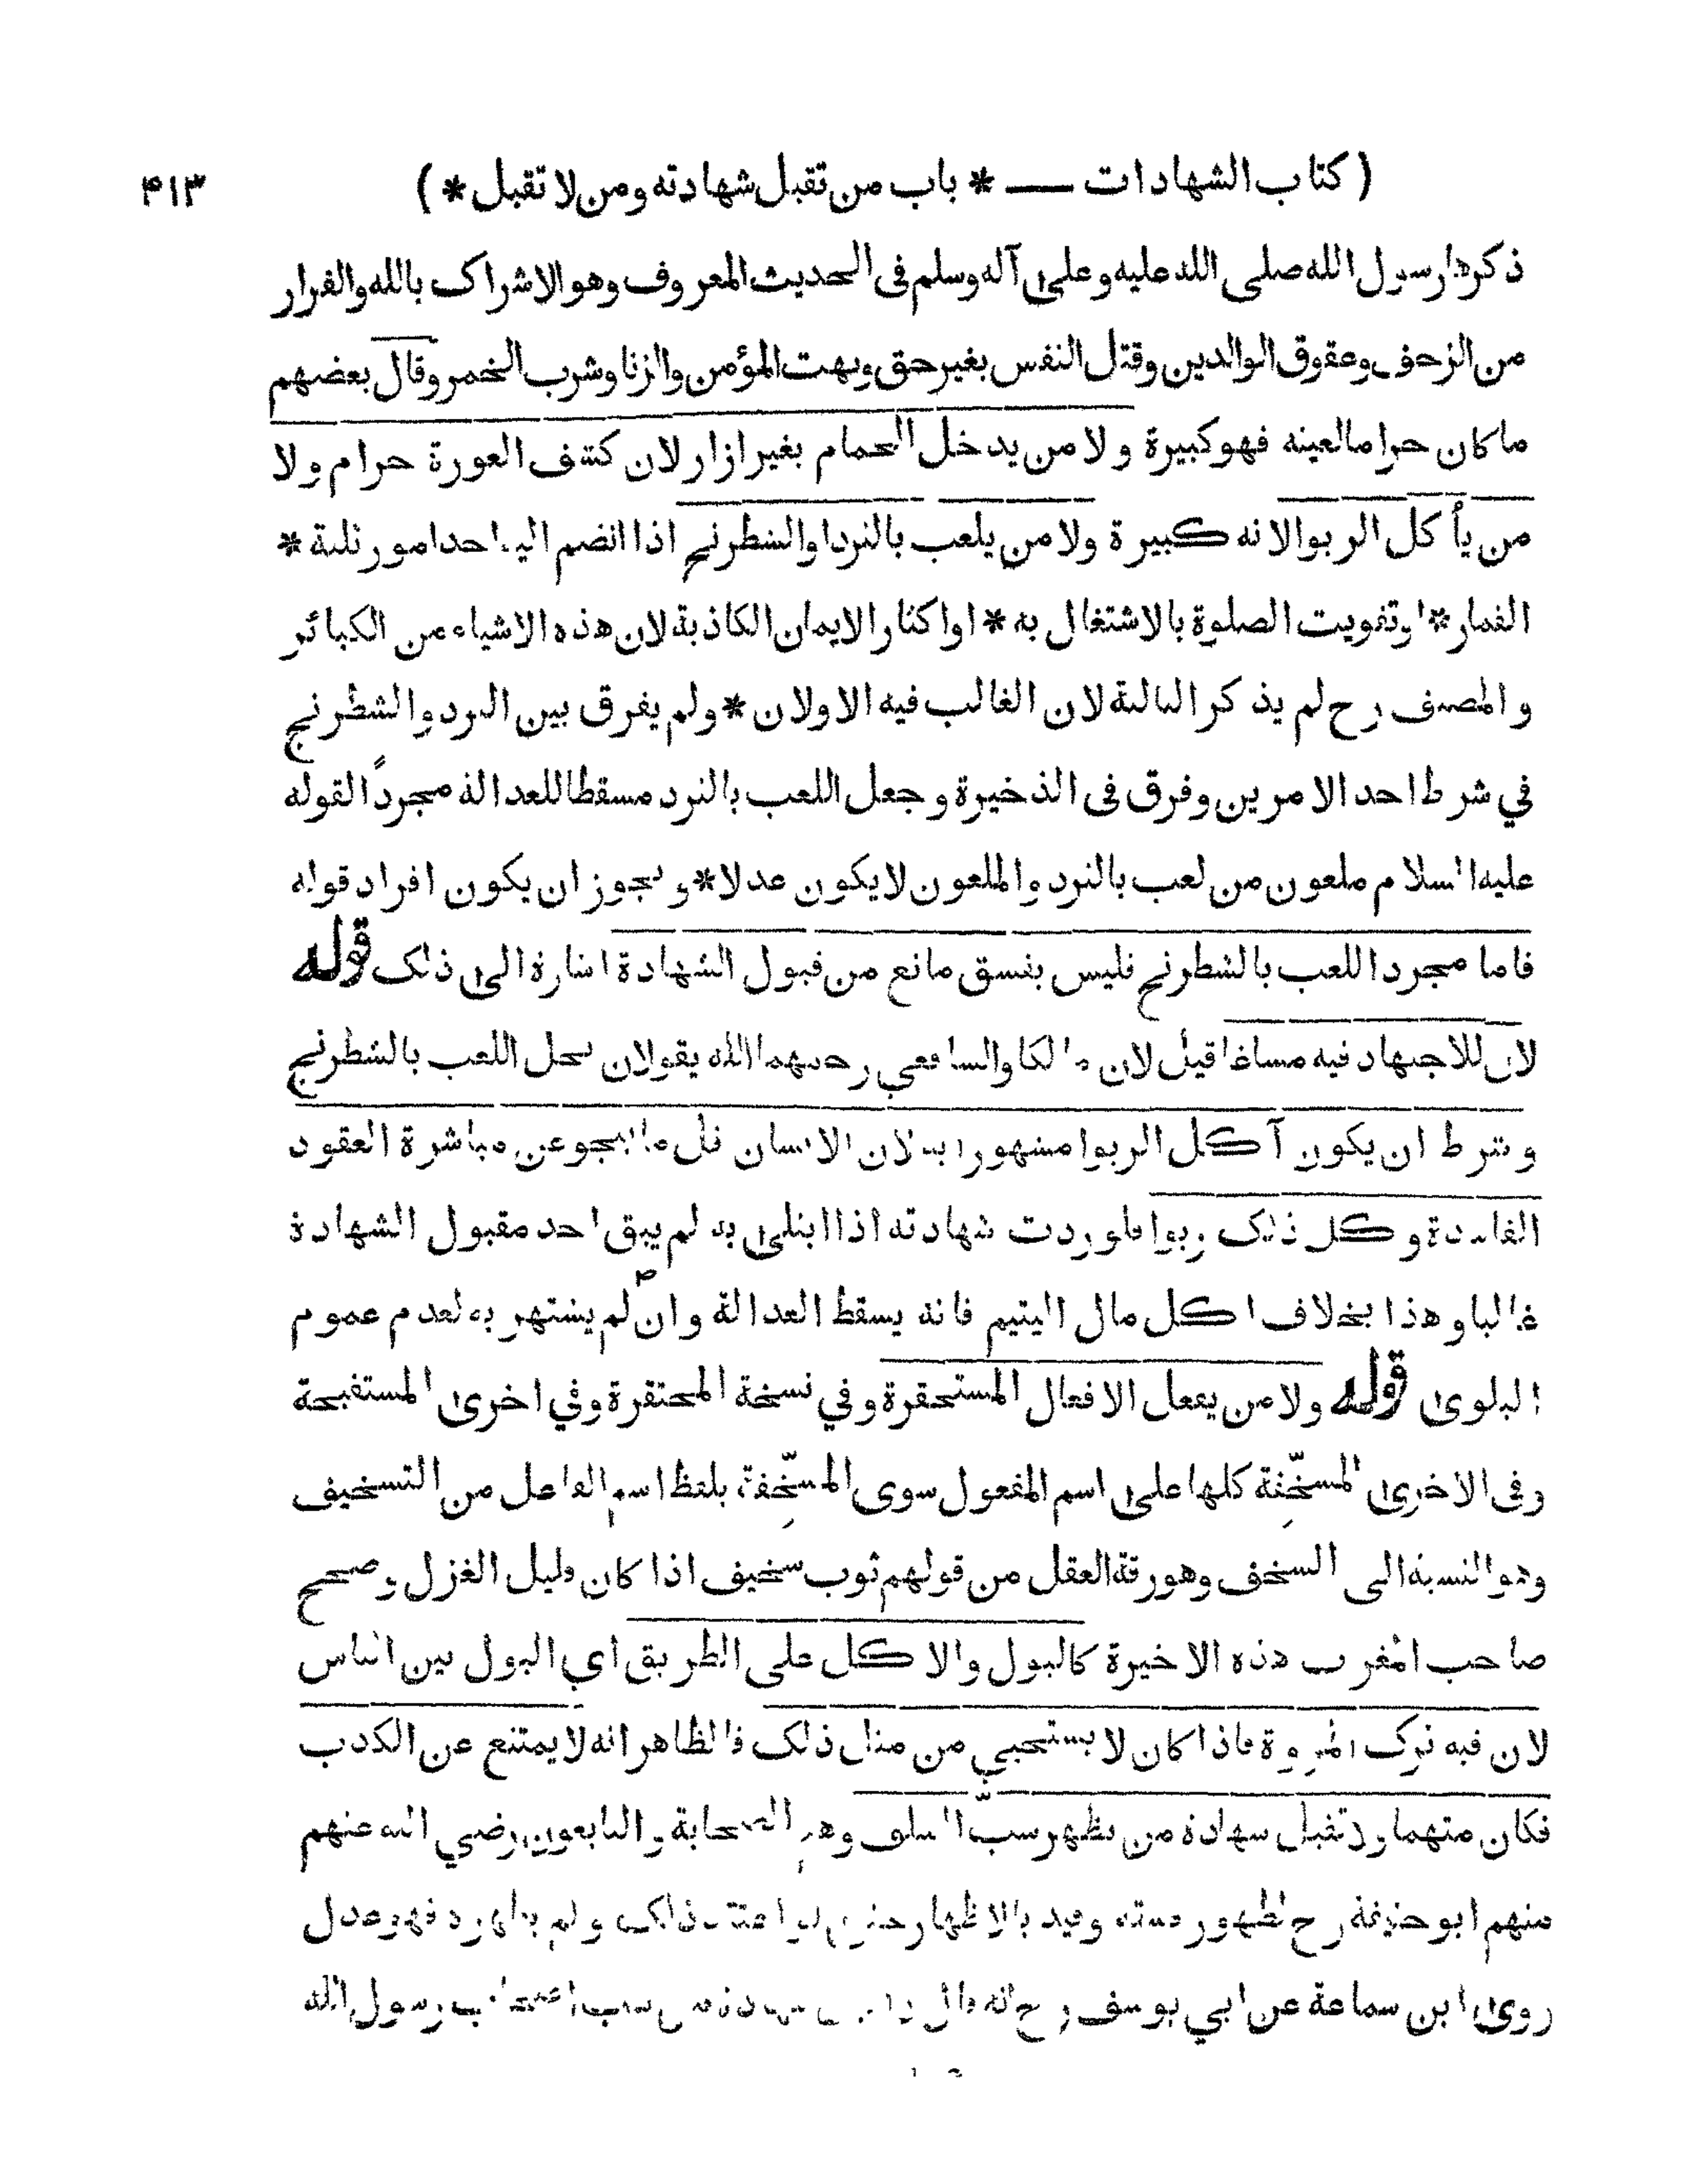 ( كتاب الشهادات — * باب من تقبل شهادته ومن لا تقبل * ) ۴۱۳
ذكرها رسول الله صلى الله عليه وعلى آله وسلم فى الحديث المعروف وهو الاشراك بالله والفرار
من الزحف وعقوق الوالدين وقتل النفس بغير حق وبهت المؤمن والزنا وشرب الخمر وقال بعضهم
ما كان حراما لعينه فهو كبيرة ولا من يدخل الحمام بغير ازار لان كشف العورة حرام ولا
من يأكل الربوا لانه كبيرة ولا من يلعب بالنرد والشطرنج اذا انضم اليه احد امور ثلثة *
القمار * او تفويت الصلوة بالاشتغال به * او اكثار الايمان الكاذبة لان هذه الاشياء من الكبائر
والمصنف رح لم يذكر الثالثة لان الغالب فيه الاولان * ولم يفرق بين النرد والشطرنج
في شرط احد الامرين وفرق فى الذخيرة وجعل اللعب بالنرد مسقطا للعدالة مجردًا لقوله
عليه السلام ملعون من لعب بالنرد والملعون لا يكون عدلا * ويجوز ان يكون افراد قوله
فاما مجرد اللعب بالشطرنج فليس بفسق مانع من قبول الشهادة اشارة الى ذلك قوله
لان للاجتهاد فيه مساغا قيل لان مالكا والشافعي رحمهما الله يقولان بحل اللعب بالشطرنج
وشرط ان يكون آكل الربوا مشهورا به لان الانسان قل ما ينجو عن مباشرة العقود
الفاسدة وكل ذلك ربوا فلو ردت شهادته اذا ابتلى به لم يبق احد مقبول الشهادة
غالبا وهذا بخلاف اكل مال اليتيم فانه يسقط العدالة وان لم يشتهر به لعدم عموم
البلوى قوله ولا من يفعل الافعال المستحقرة وفي نسخة المحتقرة وفي اخرى المستقبحة
وفى الاخرى المسخّفة كلها على اسم المفعول سوى المسخِّفة بلفظ اسم الفاعل من التسخيف
وهو النسبة الى السخف وهو رقة العقل من قولهم ثوب سخيف اذا كان قليل الغزل وصحح
صاحب المغرب هذه الاخيرة كالبول والاكل على الطريق اي البول بين الناس
لان فيه ترك المروة فاذا كان لا يستحيي من مثل ذلك فالظاهر انه لا يمتنع عن الكذب
فكان متهما ولا تقبل شهادة من يظهر سبّ السلف وهم الصحابة والتابعون رضي الله عنهم
منهم ابو حنيفة رح لظهور فسقه وقيد بالاظهار حتى لو اعتقد ذلك ولم يظهره فهو عدل
روى ابن سماعة عن ابي يوسف رح انه قال لا اقبل شهادة من سب اصحاب رسول الله